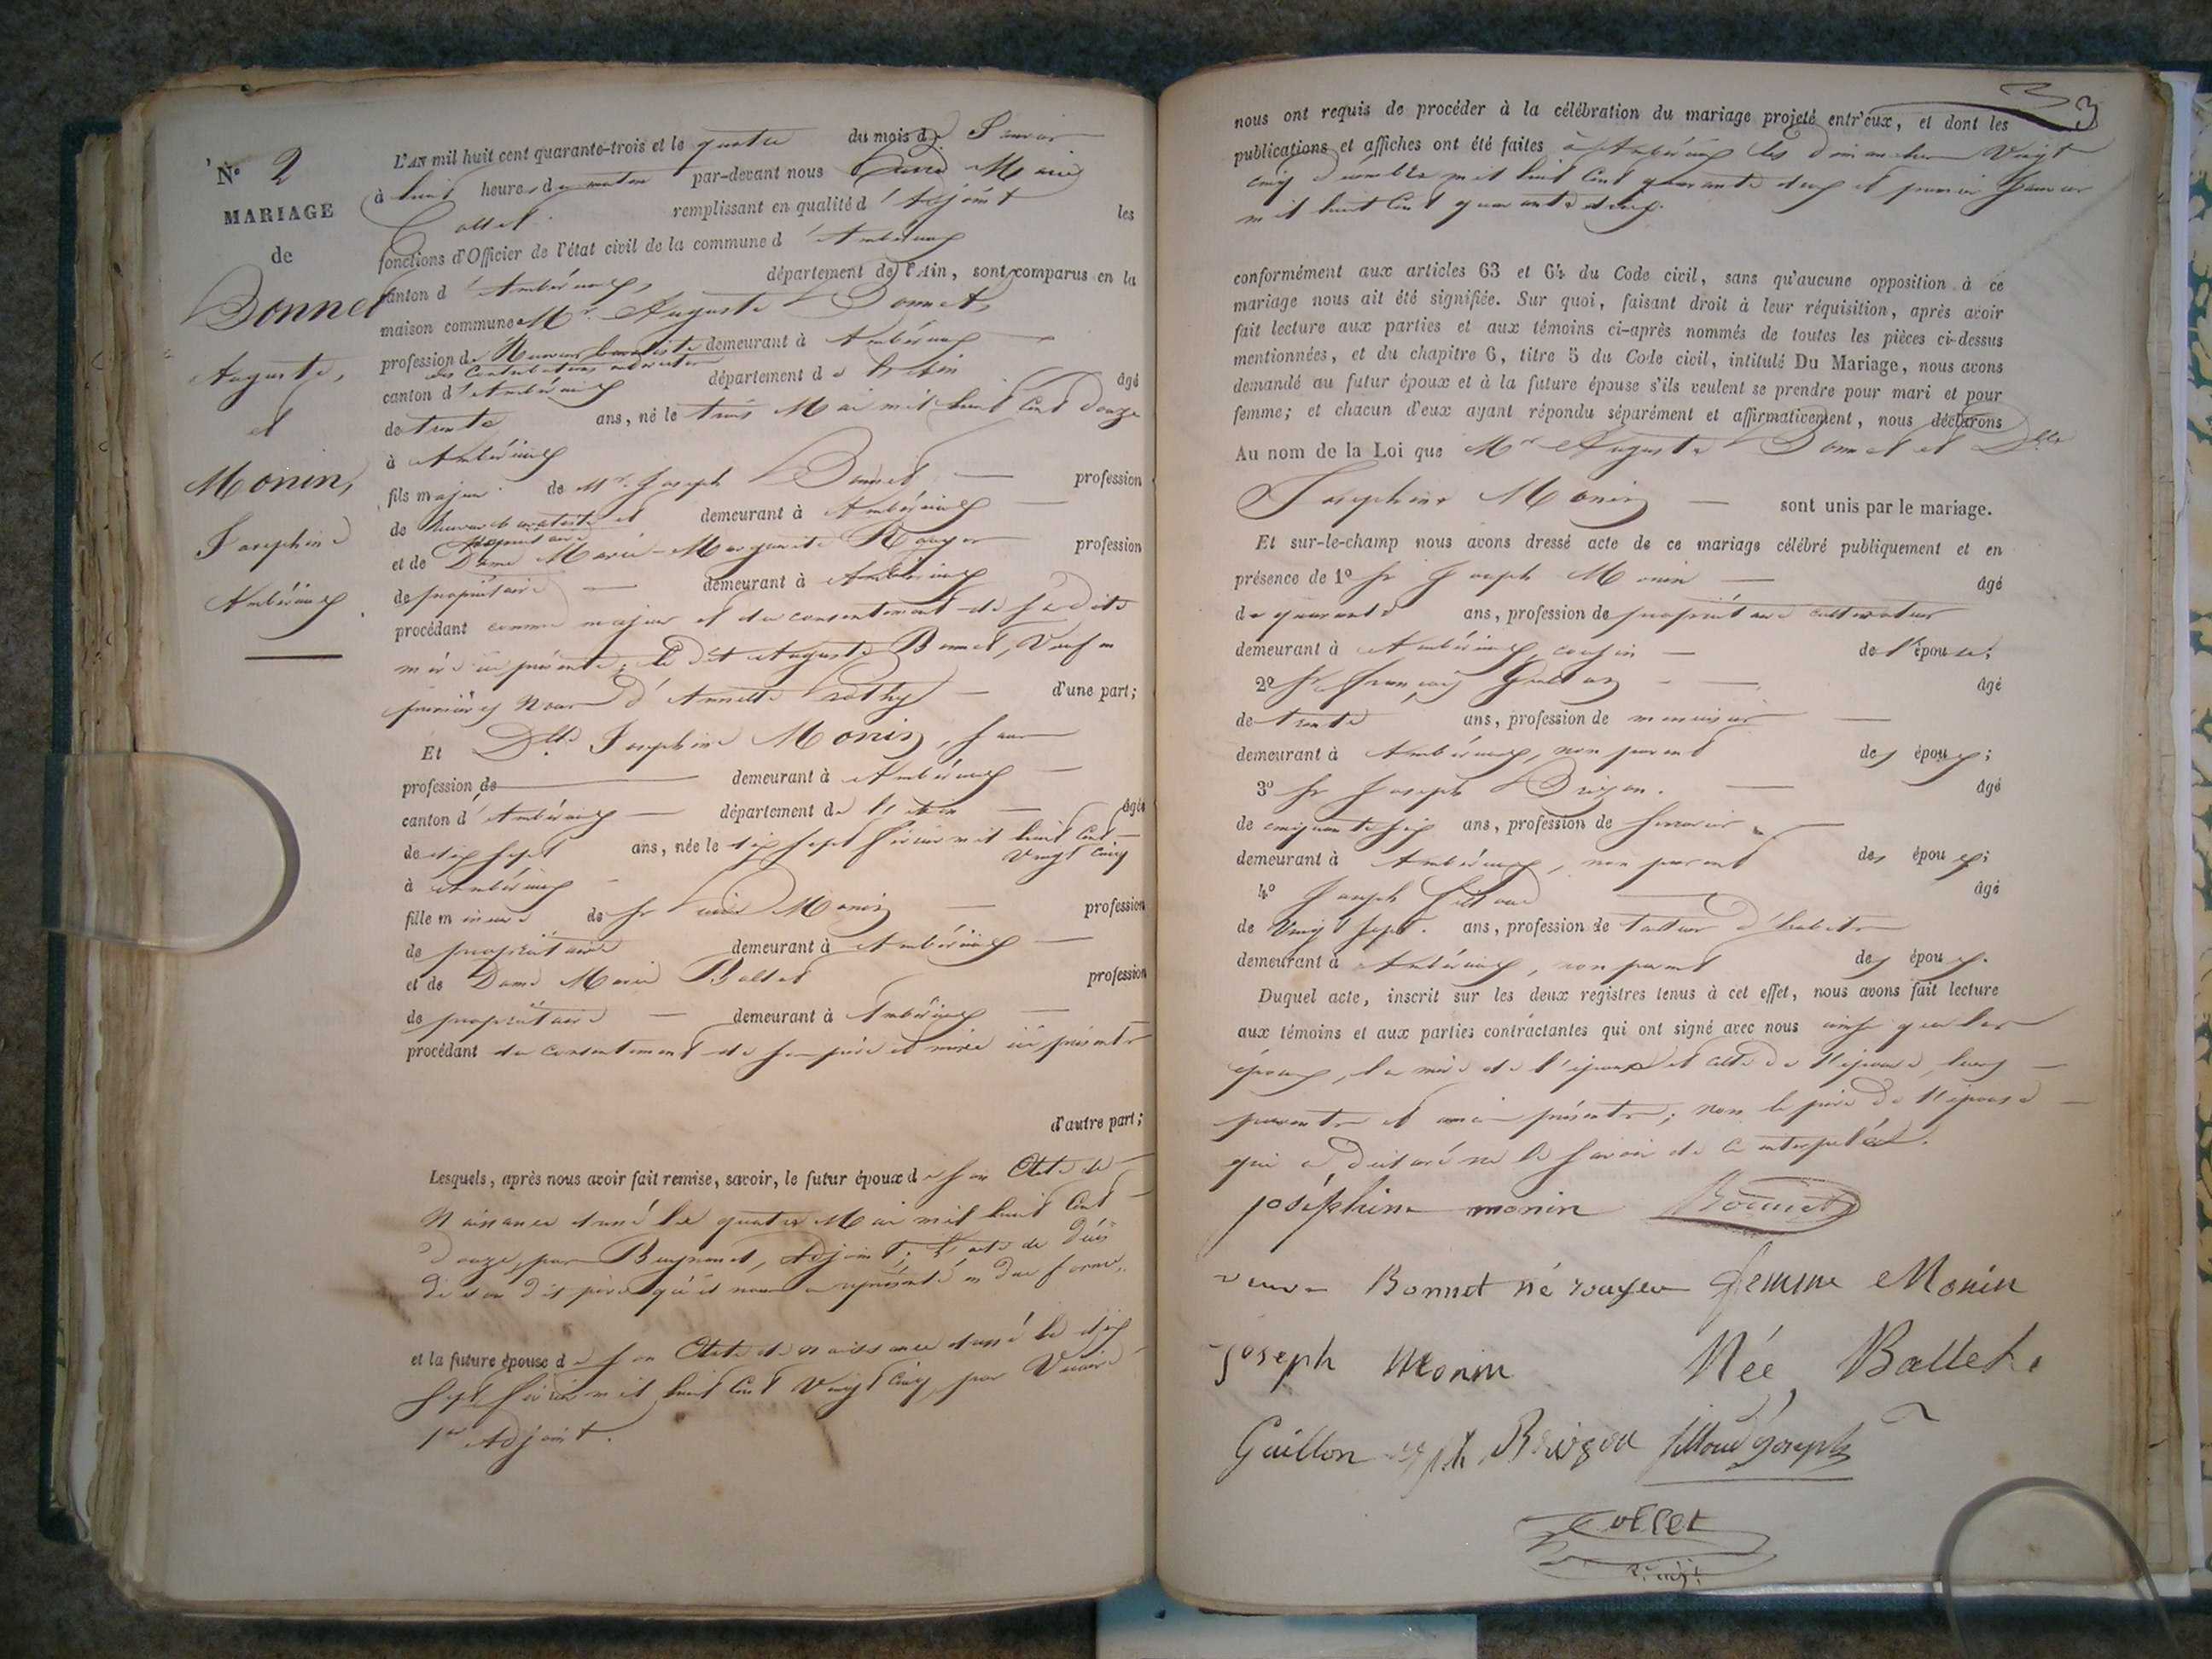 N° 2
MARIAGE
de
Bonnet
Auguste,
et
Monin,
Josephine
Ambérieux
L'AN mil huit cent quarante-trois et le quatre du mois de Janvier
à huit heures du matin par-devant nous Marie
Collet remplissant en qualité d'Adjoint les
fonctions d'Officier de l'état civil de la commune d'Ambérieux
canton d'Ambérieux, département de l'Ain, sont comparus en la
maison commune Mr. Auguste Bonnet,
profession de demeurant à Ambérieux
des Contributions indirectes
canton d'Ambérieux département de l'Ain âgé
de trente ans, né le trois Mai mil huit Cent Douze
à Ambérieux
fils majeur de Mr. Joseph Bonnet profession
de demeurant à Ambérieux
propriétaire
et de Dame Marie-Margueritte Rouger profession
de propriétaire demeurant à Ambérieux
procédant comme majeur et du consentement de sa dite
mère ici présente; le dit Auguste Bonnet, Veuf en
premières Noces d'Annette d'une part;
Et Dlle Josephine Monin, sans
profession de demeurant à Ambérieux
canton d'Ambérieux département de l'Ain âgée
de dix sept ans, née le dix sept février mil huit Cent
Vingt cinq
à Ambérieux
fille mineure de Sr Monin profession
de propriétaire demeurant à Ambérieux
et de Dame Marie Ballet profession
de propriétaire demeurant à Ambérieux
procédant du consentement de ses père et mère ici présents
d'autre part;
Lesquels, après nous avoir fait remise, savoir, le futur époux de son Acte de
Naissance dressé le quatre Mai mil huit Cent
Douze, par Adjoint; l'acte de Décès
de son dit père qu'il nous a représenté en due forme,
et la future épouse de son Acte de naissance dressé le dix
Sept février mil huit Cent Vingt cinq, par
1er Adjoint.
3
nous ont requis de procéder à la célébration du mariage projeté entr'eux, et dont les
publications et affiches ont été faites à Ambérieux les Dimanches Vingt
cinq Décembre mil huit Cent quarante deux et premier Janvier
mil huit Cent quarante
conformément aux articles 63 et 64 du Code civil, sans qu'aucune opposition à ce
mariage nous ait été signifiée. Sur quoi, faisant droit à leur réquisition, après avoir
fait lecture aux parties et aux témoins ci-après nommés de toutes les pièces ci-dessus
mentionnées, et du chapitre 6, titre 5 du Code civil, intitulé Du Mariage, nous avons
demandé au futur époux et à la future épouse s'ils veulent se prendre pour mari et pour
femme; et chacun d'eux ayant répondu séparément et affirmativement, nous déclarons
Au nom de la Loi que Mr Auguste Bonnet et Dlle
Josephine Monin sont unis par le mariage.
Et sur-le-champ nous avons dressé acte de ce mariage célébré publiquement et en
présence de 1° Sr Joseph Monin âgé
de quarante ans, profession de propriétaire cultivateur
demeurant à Ambérieux, cousin de l'épouse;
2° Sr François Guillon âgé
de trente ans, profession de menuisier
demeurant à Ambérieux, non parent des époux;
3° Sr Joseph Brizon. âgé
de cinquante six ans, profession de serrurier
demeurant à Ambérieux, non parent des époux;
4° Joseph Filloud âgé
de Vingt Sept. ans, profession de tailleur d'habits
demeurant à Ambérieux, non parent des époux.
Duquel acte, inscrit sur les deux registres tenus à cet effet, nous avons fait lecture
aux témoins et aux parties contractantes qui ont signé avec nous ainsi que les
époux, la mère de l'époux et celle de l'épouse, leurs
parents et amis présents; non le père de l'épouse
qui a déclaré ne le savoir de ce interpellé.
joséphine monin Bonnet
veuve Bonnet né rouger femme Monin
joseph Monin Née Ballet.
Guillon jph Brizon filloud Joseph
Collet